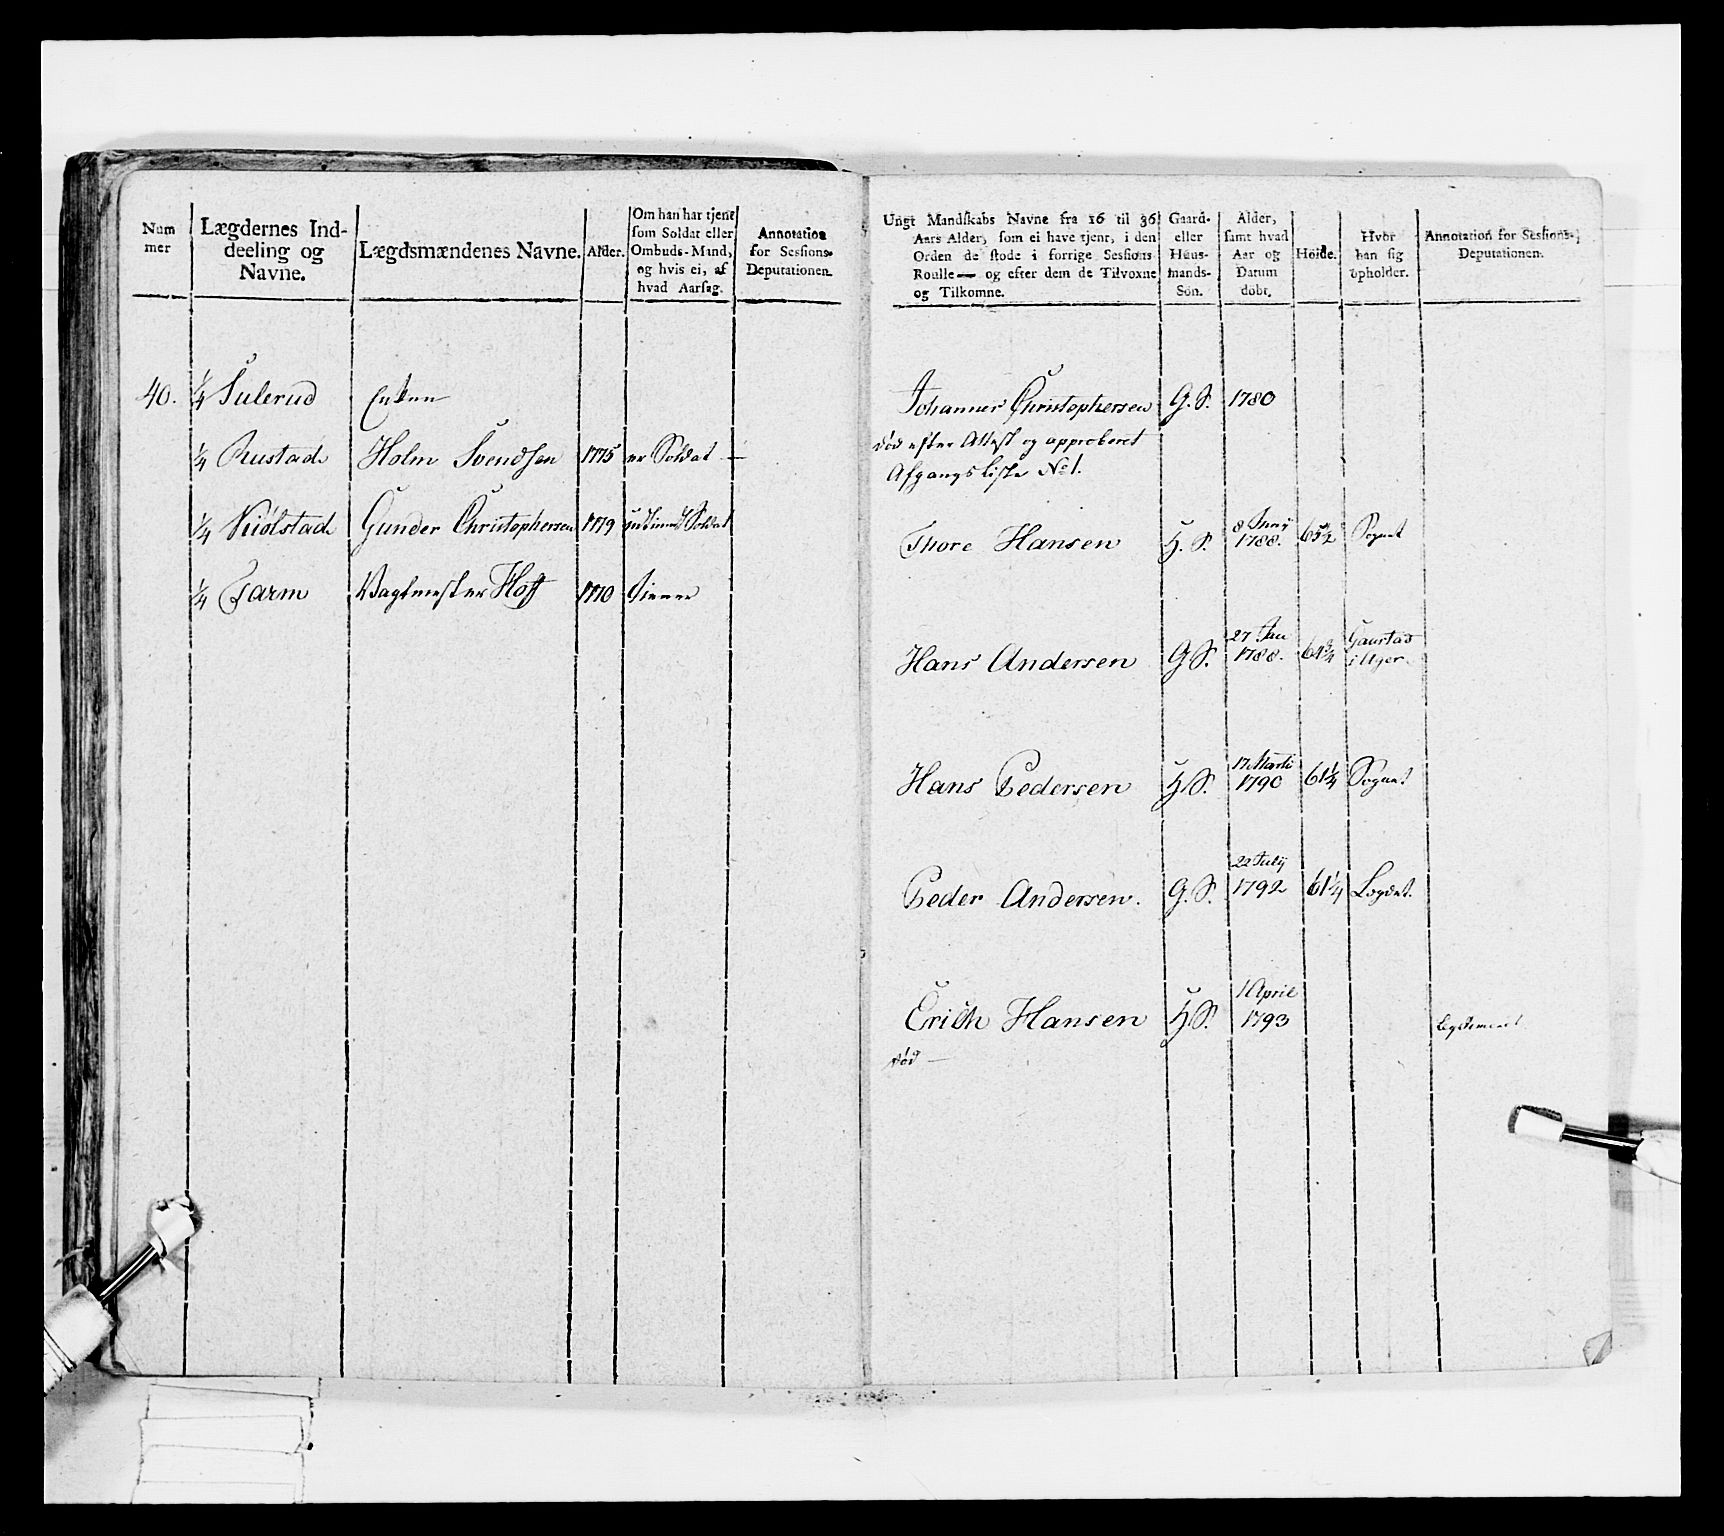 Num
mer
Lægdernes Ind-
deeling og
Navne.
Lægdsmændenes Navne.
Alder.
Om han har tjent
som Soldat eller
Ombuds-Mand,
og hvis ei, af
hvad Aarsag.
Annotation
for Sessions-
Deputationen.
40. 1/4 Sulerud Enken
1/4 Rustad Holm Svendsen 1775 er Soldat —
1/4 Kiölstad Gunder Christophersen 1779 Soldat
1/4 Farm Vagtmester Hoff 1770 tiener
Ungt Mandskabs Navne fra 16 til 36
Aars Alder, som ei have tjent, i den
Orden de stode i forrige Sessions
Roulle — og efter dem de Tilvoxne
og Tilkomne.
Gaard-
eller
Huus-
mands-
Søn.
Alder,
samt hvad
Aar og
Datum
døbt.
Høide.
Hvor
han sig
opholder.
Annotation for Sessions-
Deputationen.
Johannes Christophersen G. S. 1780
död efter Attest og approberet
Afgangsliste No 1.
8 Juny
Thore Hansen H. S. 1788. 65 1/2 Sognet
27 Jan Gaustad
Hans Andersen G S. 1788. 61 3/4 i Ager.
17 Marti
Hans Pedersen H S. 1790 61 1/4 Sognet
22 July
Peder Andersen. G. S. 1792 61 1/4 Logdet.
1 April
Erich Hansen H S. 1793
död —